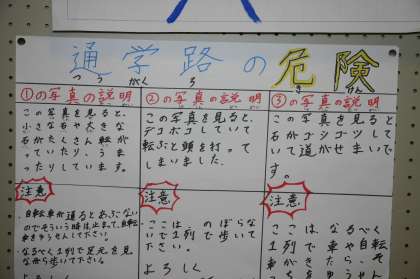 通学路の危険
つう がく ろ き けん
①の写真の説明
この写真を見ると、
小さな石や大きな
石がたくさん転が
っていたり、うま
ったりしています。
注意
・自転車が通るとあぶない
のでそういう時は止まって、自転
車をゆうせんして下さい。
・なるべく1列で足元を見
ながら歩いて下さい。
②の写真の説明
この写真を見ると、
デコボコしていて
転ぶと頭を打って
しまいました。
注意
ここは、のぼらな
いで1列で歩いて
下さい。
よろしく
③の写真の説明
この写真を見ると
石がゴツゴツして
いて道がせまいで
す。
注意
ここは、なるべく
1列で車や自転
車がきたら、そ